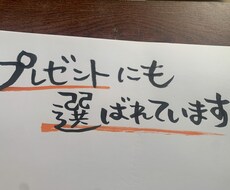 プレゼントにも
選ばれています